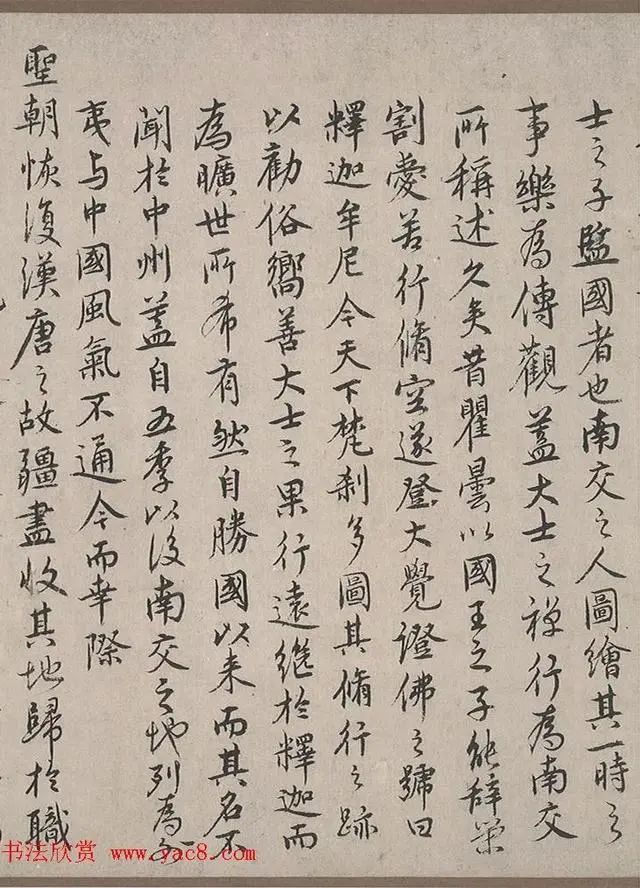 士之子監國者也南交之人圖繪其一時之
事樂為傳觀蓋大士之禅行為南交
所稱述久矣昔瞿曇以國王之子能辞榮
割愛苦行脩空遂登大覺證佛之號曰
釋迦牟尼今天下梵刹多圖其脩行之跡
以勸俗嚮善大士之果行遠继於釋迦而
為曠世所希有然自勝國以来而其名不
聞於中州蓋自五季以後南交之地列為外
夷与中國風氣不通今而幸際
聖朝恢復漢唐之故疆盡收其地歸於職
书法欣赏 www.yac8.com